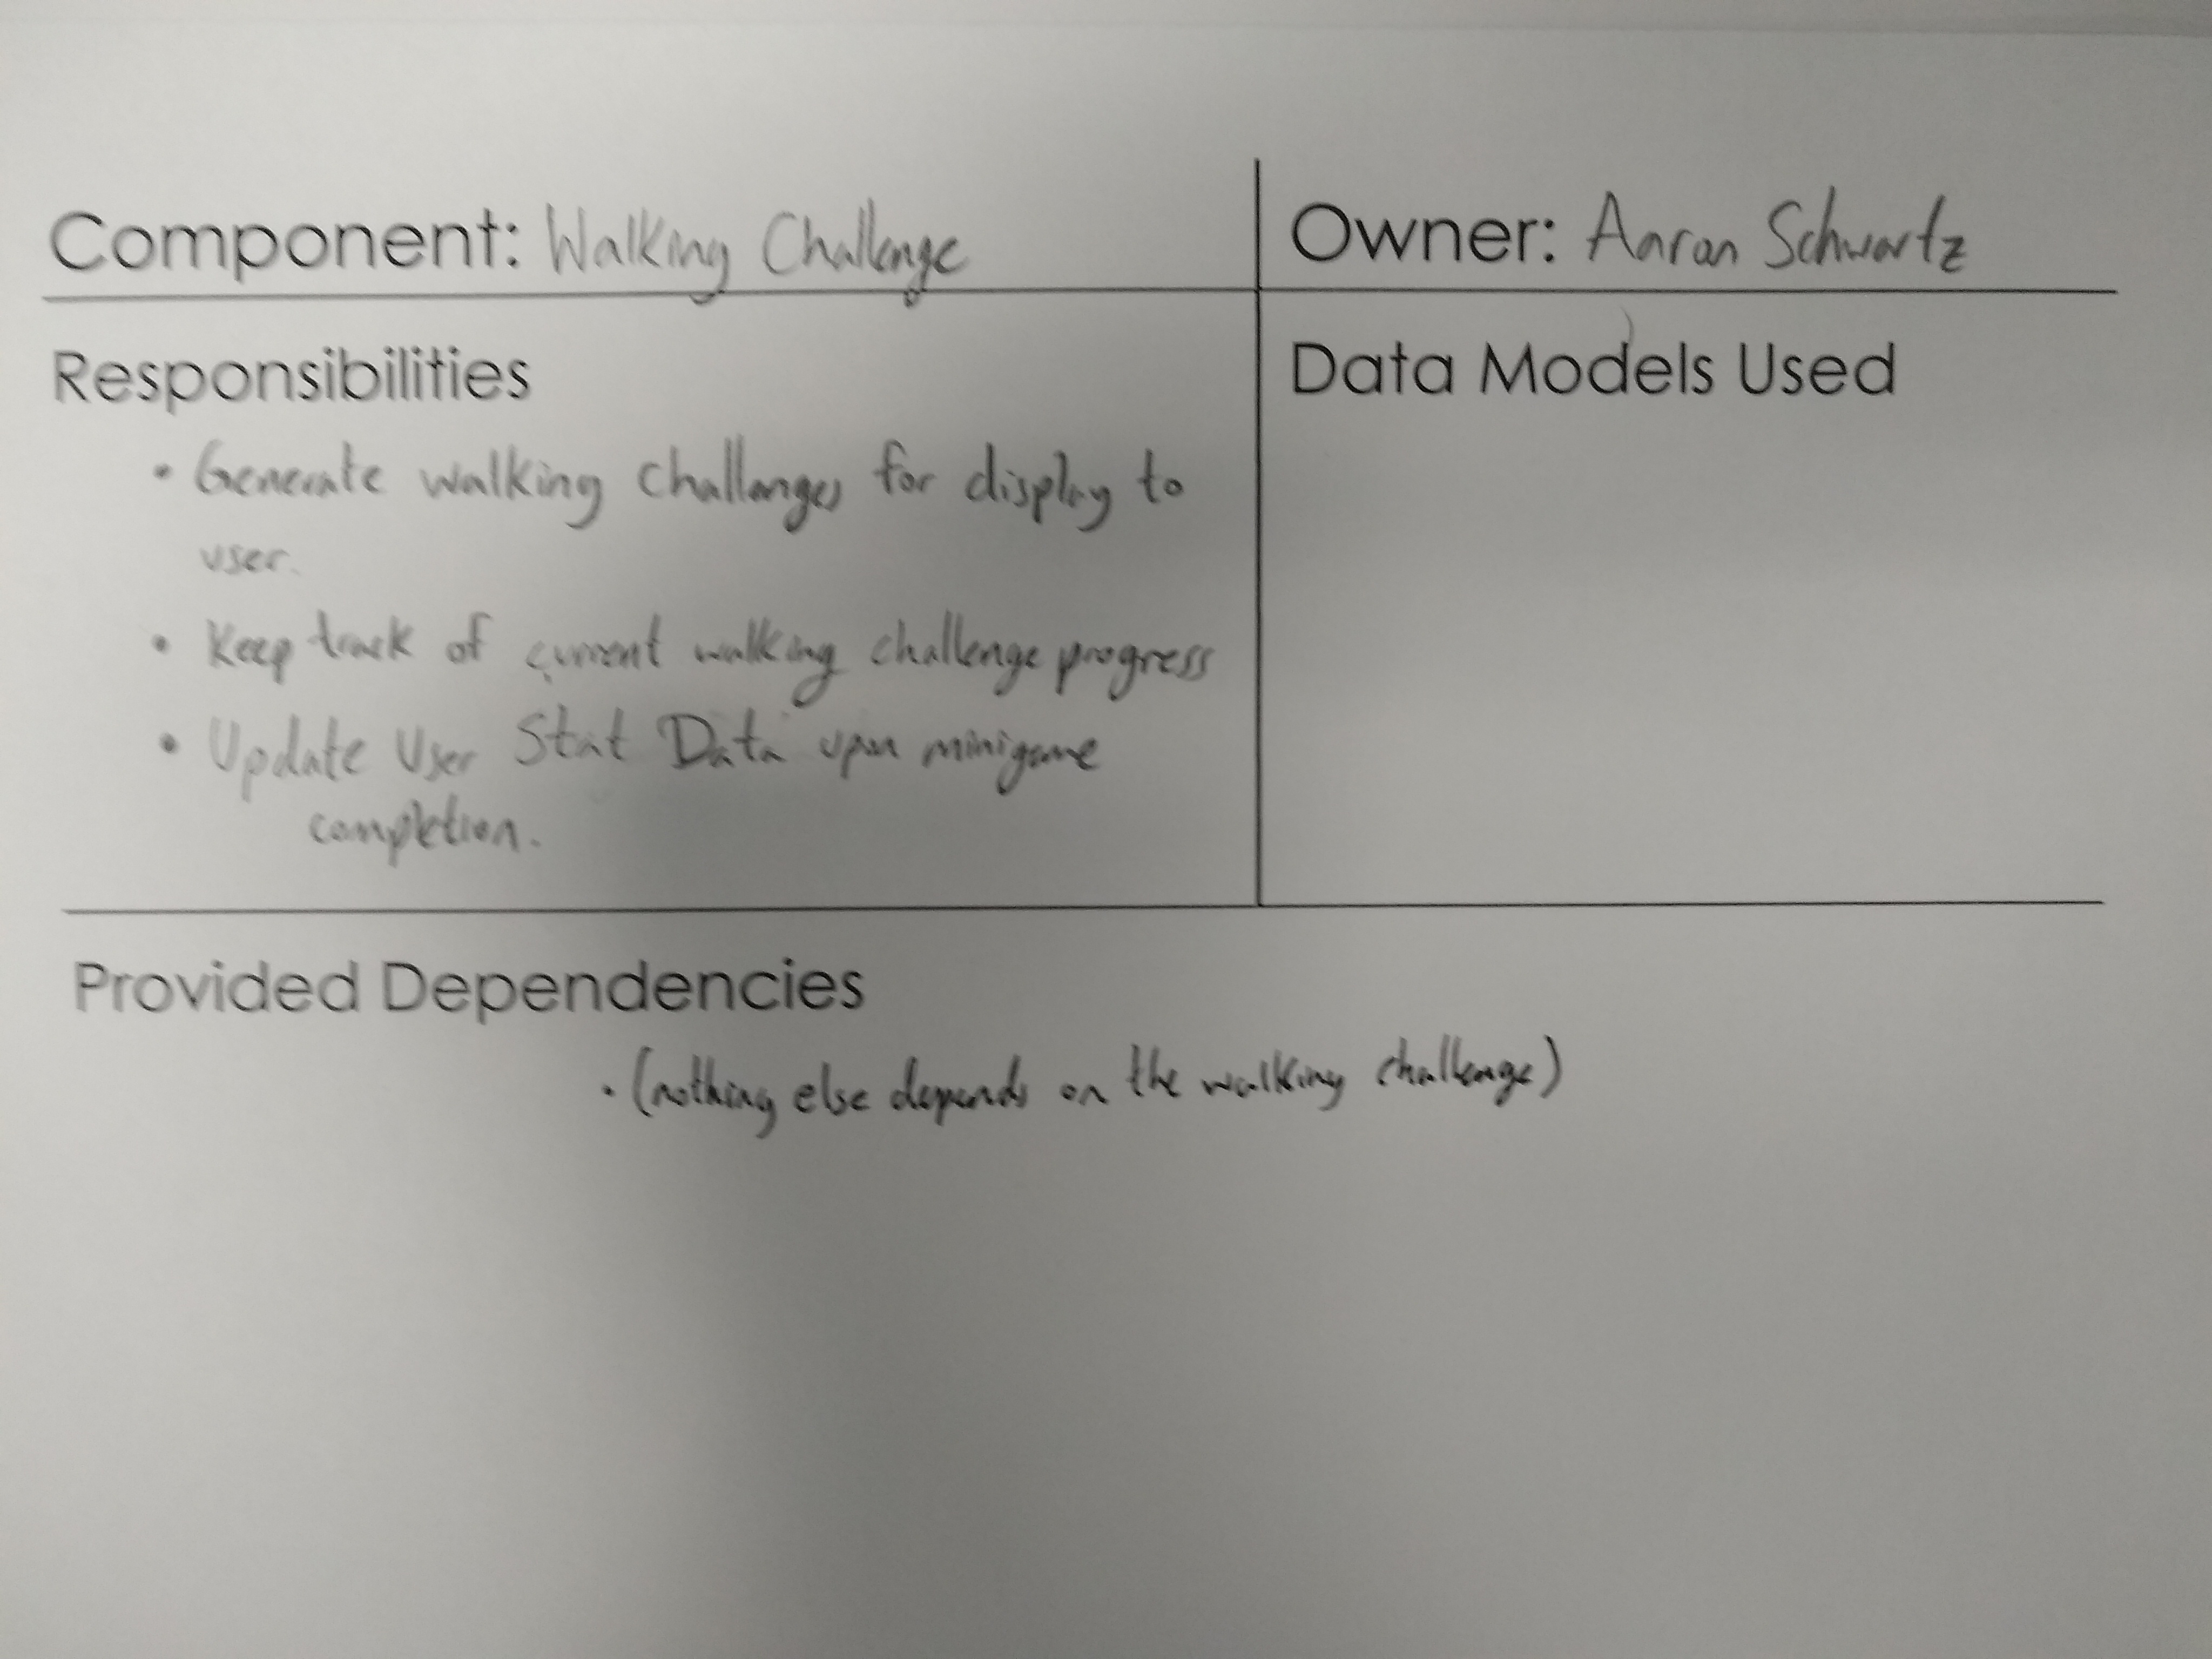 Component: Walking Challenge
Owner: Aaron Schwartz
Responsibilities
• Generate walking challenges for display to
user.
• Keep track of current walking challenge progress
• Update User Stat Data upon minigame
completion.
Data Models Used
Provided Dependencies
• (nothing else depends on the walking challenge)